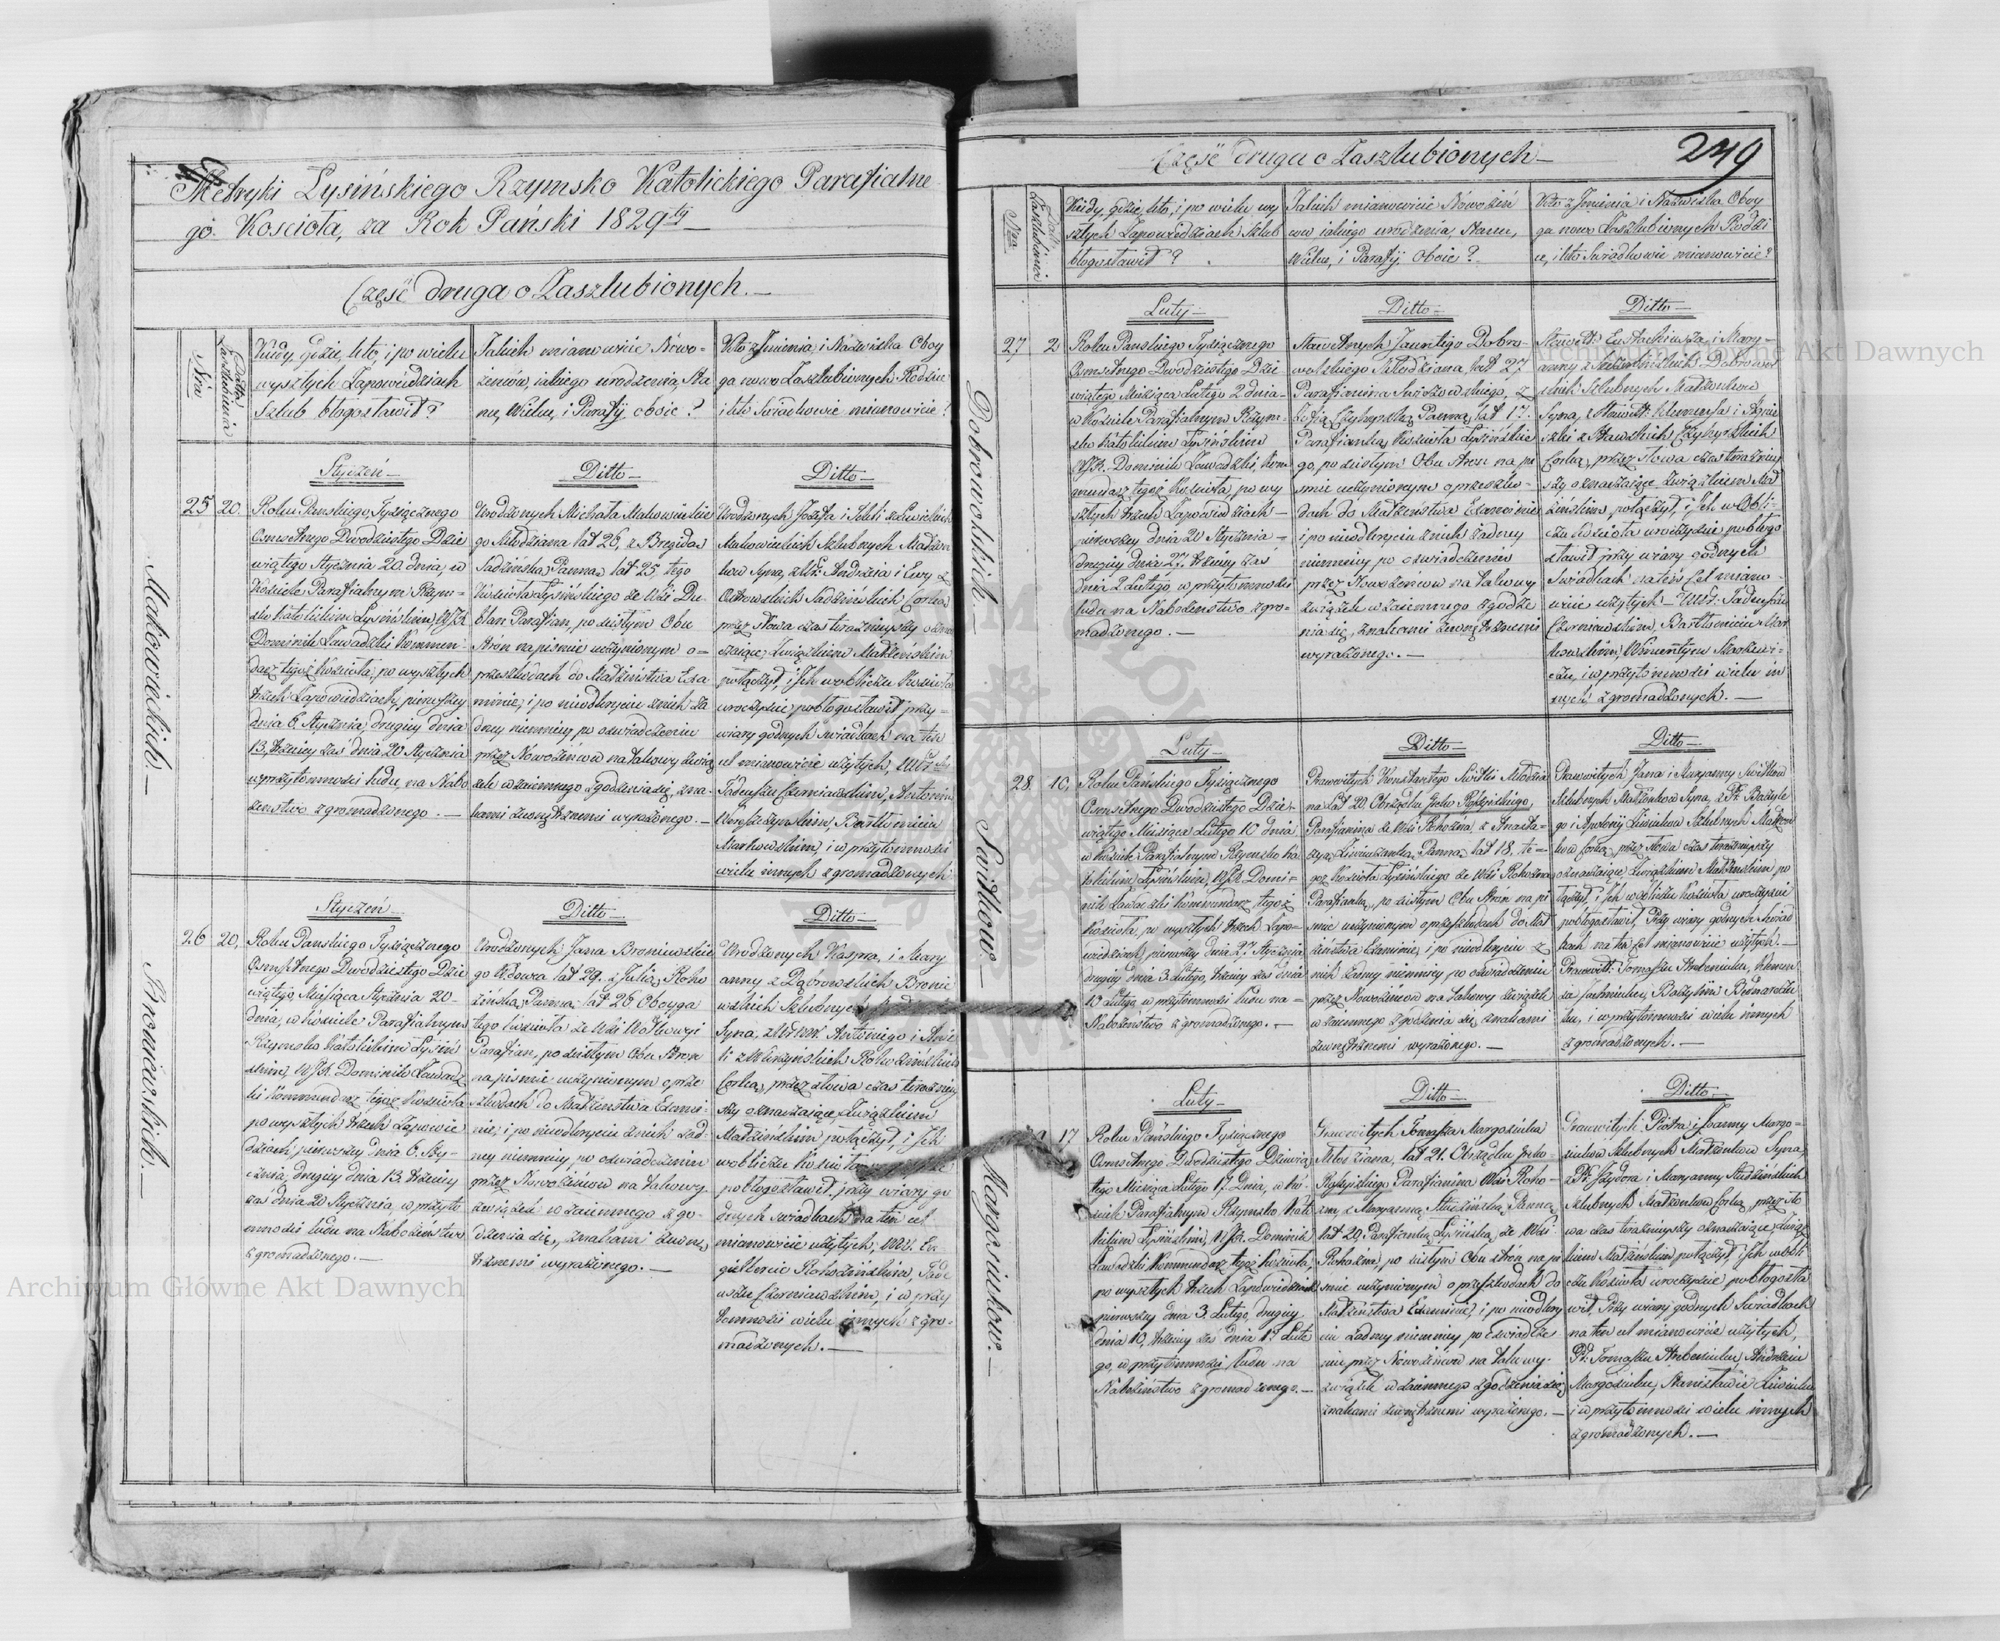 Metryki Łysińskiego Rzymsko Katolickiego Parafialne
go Kościoła, za Rok Pański 1829ty
Część druga o Zaszlubionych.
Nro
Data Zaszlubienia
Kiedy, gdzie, kto, i po wielu
wyszłych Zapowiedziach
Szlub błogosławił?
Jakich mianowicie Nowo-
żeńców, iakiego urodzenia, Sta
nu, Wieku, i Parafij oboie?
Kto z Imienia, i Nazwiska Oboy
ga nowo Zaszlubionych Rodzice
i kto Swiadkowie mianowicie?
Makowieckich.
25
20.
Styczeń
Roku Pańskiego Tysiącznego
Osmsetnego Dwudziestego Dzie
wiątego Stycznia 20. dnia, w
Kościele Parafialnym Rzym-
sko Katolickim Łysińskim WJX
Dominik Zawadzki Kommen-
darz tegoż kościoła, po wyszłych
trzech Zapowiedziach, pierwszy
dnia 6. Stycznia, drugiey dnia
13, trzeciey zaś dnia 20 Stycznia
w przytomności ludu, na Nabo
żenstwo zgromadzonego.
Ditto
Urodzonych Michała Makowieckie
go Młodziana lat 26, z Brygidą
Sadzińską Panną, lat 25, tego
Kościoła Łysińskiego ze Wsi Du-
blan Parafian, po ścisłym Obu
Stron na piśmie uczynionym o-
przeszkodach do Małżeństwa Exa
minie, i po nieodkryciu żnich ża
dney niemniey, po oświadczeniu
przez Nowożeńcow na takowy związ
zek wzaiemnego zgodzenia się, zna-
kami zewnętrznemi wyrażonego.
Ditto
Urodzonych Józefa i Tekli
Makowieckich Szlubnych Małżon
kow Syna, z Andrzeia i Ewy z
Ostrowskich Sadzińskich Corką
przez słowa czas teraznieyszy ozna
czaiące, Związkiem Małżeńskim
połączył, i Ich w obliczu Kościoła
uroczyście pobłogosławił przy-
wiary godnych Swiadkach na ten
cel mianowicie użytych,
Tadeuszu Czerniawskim, Antonim
Bartłomieiu
Markowskim, i w przytomności
wielu innych zgromadzonych
Broniewskich.
26
20,
Styczeń
Roku Pańskiego Tysiącznego
Osmsetnego Dwudziestego Dzie
wiątego, Miesiąca Stycznia 20-
dnia, w Kościele Parafialnym
Rzymsko Katolickim Łysiń
skim, WJX. Dominik Zawadz
ki Kommendarz tegoż kościoła
po wyszłych trzech Zapowie
dziach, pierwszy dnia 6. Sty-
cznia, drugiey dnia 13, trzeciey
zaś dnia 20 Stycznia, w przyto
mności ludu na Nabożeństwo
zgromadzonego.
Ditto
Urodzonych Jana Broniewskie
go Wdowca lat 29. z Julią Roho
zińską Panną, lat 26 Oboyga
tego kościoła ze Wsi
Parafian, po ścisłym Obu Stron
na piśmie uczynionym o prze
szkodach do Małżeństwa Exami-
nie, i po nieodkryciu żnich żad-
ney niemniey, po oświadczeniu
przez Nowożeńców na takowy-
związek wzaiemnego zgo-
dzenia się, znakami zewnę
trznemi wyrażonego.
Ditto
Urodzonych Kaspra, i Mary
anny z Dąbrowskich Bronie
wskich Szlubnych Małżonków
Syna, z Antoniego i Anie
li Rohozińskich
Corką, przez słowa czas terazniey
szy oznaczaiące, Związkiem
Małżeńskim połączył, i Ich
w obliczu Kościoła
pobłogosławił przy wiary go
dnych Swiadkach na ten cel
mianowicie użytych,
Rohozińskim, Tade
uszu Czerniawskim, i w przy
tomności wielu innych zgro-
madzonych.
Część druga o Zaszlubionych
249
Nro
Data Zaszlubienia
Kiedy, gdzie, kto, i po wielu wy
szłych Zapowiedziach Szlub
błogosławił?
Jakich mianowicie Nowożeń
ców iakiego urodzenia, Stanu,
Wieku, i Parafij Oboie?
Kto z Imienia i Nazwiska Oboy
ga nowo Zaszlubionych Rodzi
ce, i kto Swiadkowie mianowicie?
Dobrowolskich.
27
2
Luty
Roku Pańskiego Tysiącznego
Osmsetnego Dwudziestego Dzie
wiątego Miesiąca Lutego 2 dnia-
w Kościele Parafialnym Rzym-
sko Katolickim Łysińskim
WJX. Dominik Zawadzki, Kom
mendarz tegoż Kościoła, po wy
szłych trzech Zapowiedziach-
pierwszey dnia 20 Stycznia-
drugiey dnia 27, trzeciey zaś
dnia 2 Lutego, w przytomności
ludu na Nabożeństwo zgro-
madzonego.
Ditto
Sławetnych Dobro-
wolskiego Młodziana, lat 27
Parafianina z
Zofią Panną, lat 17.
Parafianką Kościoła Łysińskie
go, po ścisłym Obu Stron na pi
śmie uczynionym o przeszko-
dach do Małżeństwa Examinie
i po nieodkryciu żnich żadney
niemniey po oświadczeniu
przez Nowożeńców na takowy
związek wzaiemnego zgodze
nia się, znakami zewnętrznemi
wyrażonego.
Ditto
Sławett: Eustachiusza i Mary-
anny z Dobrowol
skich Szlubnych Małżonków
Syna, z Sławett: Klemensa i Agnie
szki
Corką, przez słowa czas teraznieyszy
oznaczaiące Związkiem Mał
żeńskim, połączył, i Ich w Obli-
czu kościoła uroczyście pobłogo
sławił przy wiary godnych
Swiadkach na tén Cel miano-
wicie użytych- Tadeuszu
Czerniawskim, Bartłomieiu Mar
kowskim,
i w przytomności wielu in
nych zgromadzonych.
Switkow.
28.
10,
Luty
Roku Pańskiego Tysiącznego
Osmsetnego Dwudziestego Dzie-
wiątego Miesiąca Lutego 10 dnia
w kościele Parafialnym Rzymsko Ka
tolickim Łysińskim, WJX. Domi-
nik Zawadzki Kommendarz tegoż
Kościoła, po wyszłych trzech Zapo-
wiedziach, pierwszey dnia 27 Stycznia
drugiey dnia 3 Lutego, trzeciey zaś dnia
10 Lutego w przytomności ludu na-
Nabożeństwo zgromadzonego.
Ditto
Pracowitych Konstantego Switki Młodzia
na lat 20. Obrządku Greko Rossyiskiego,
Parafianina ze Wsi Rohozna, z Anasta-
zyą Panną, lat 18. te-
goż kościoła Łysińskiego ze Wsi Rohozna
Parafianką, po ścisłym Obu Stron na pi
śmie uczynionym o przeszkodach do Mał
żeństwa Examinie, i po nieodkryciu z
nich żadney niemniey po oświadczeniu
przez Nowożeńców na takowy związek
wzaiemnego zgodzenia się, znakami
zewnętrznemi wyrażonego.
Ditto
Pracowitych Jana i Maryanny Switkow
Szlubnych Małżonkow Syna, z Pr. Bazyle
go i Apolonij Szlubnych Małżon
kow Corką, przez słowa czas teraznieyszy
oznaczaiące, Związkiem Małżeńskim po
łączył, i Ich w obliczu kościoła uroczyście
pobłogosławił, Przy wiary godnych Swiad
kach na tén Cel mianowicie użytych.
Pracowitt: Tomaszu Klemen
su Bazylim
i w przytomności wielu innych
zgromadzonych.
Margosiukow.
17
Luty
Roku Pańskiego Tysiącznego
Osmsetnego Dwudziestego Dziewią
tego Miesiąca Lutego 17. Dnia, w ko
ściele Parafialnym Rzymsko Kato
lickim Łysińskim, WJX. Dominik
Zawadzki Kommendarz tegoż Kościoła,
po wyszłych trzech Zapowiedziach
pierwszey dnia 3. Lutego, drugiey
dnia 10, trzeciey zaś dnia 17 Lute
go, w przytomności ludu na
Nabożeństwo zgromadzonego.
Ditto
Pracowitych Tomasza Margosiuka
Młodziana, lat 21. Obrządku Greko
Rossyiskiego Parafianina Wsi Roho-
zny, z Maryanną Panną
lat 20, Parafianką Łysińską, ze Wsi
Rohozna, po ścisłym Obu stron na pi
śmie uczynionym o przeszkodach do
Małżeństwa Examinie, i po nieodkry
ciu żadney niemniey, po oświadcze
niu przez Nowożeńców na takowy-
związek wzaiemnego zgodzenia się
znakami zewnętrznemi wyrażonego.
Ditto
Pracowitych Piotra i Joanny Margo-
siukow Szlubnych Małżonkow Syna,
z Pr. Izydora i Maryanny
Szlubnych Małżonkow Corką, przez sło
wa czas teraznieyszy oznaczaiące, Związ
kiem Małżeńskim, połączył, i Ich w obli
czu kościoła uroczyście pobłogosła
wił, Przy wiary godnych Swiadkach
na tén cel mianowicie użytych,
Pr. Tomaszu Andrzeiu
Margosiuku, Stanisławie
i w przytomności wielu innych
zgromadzonych.
Archiwum Główne Akt Dawnych
Archiwum Główne Akt Dawnych